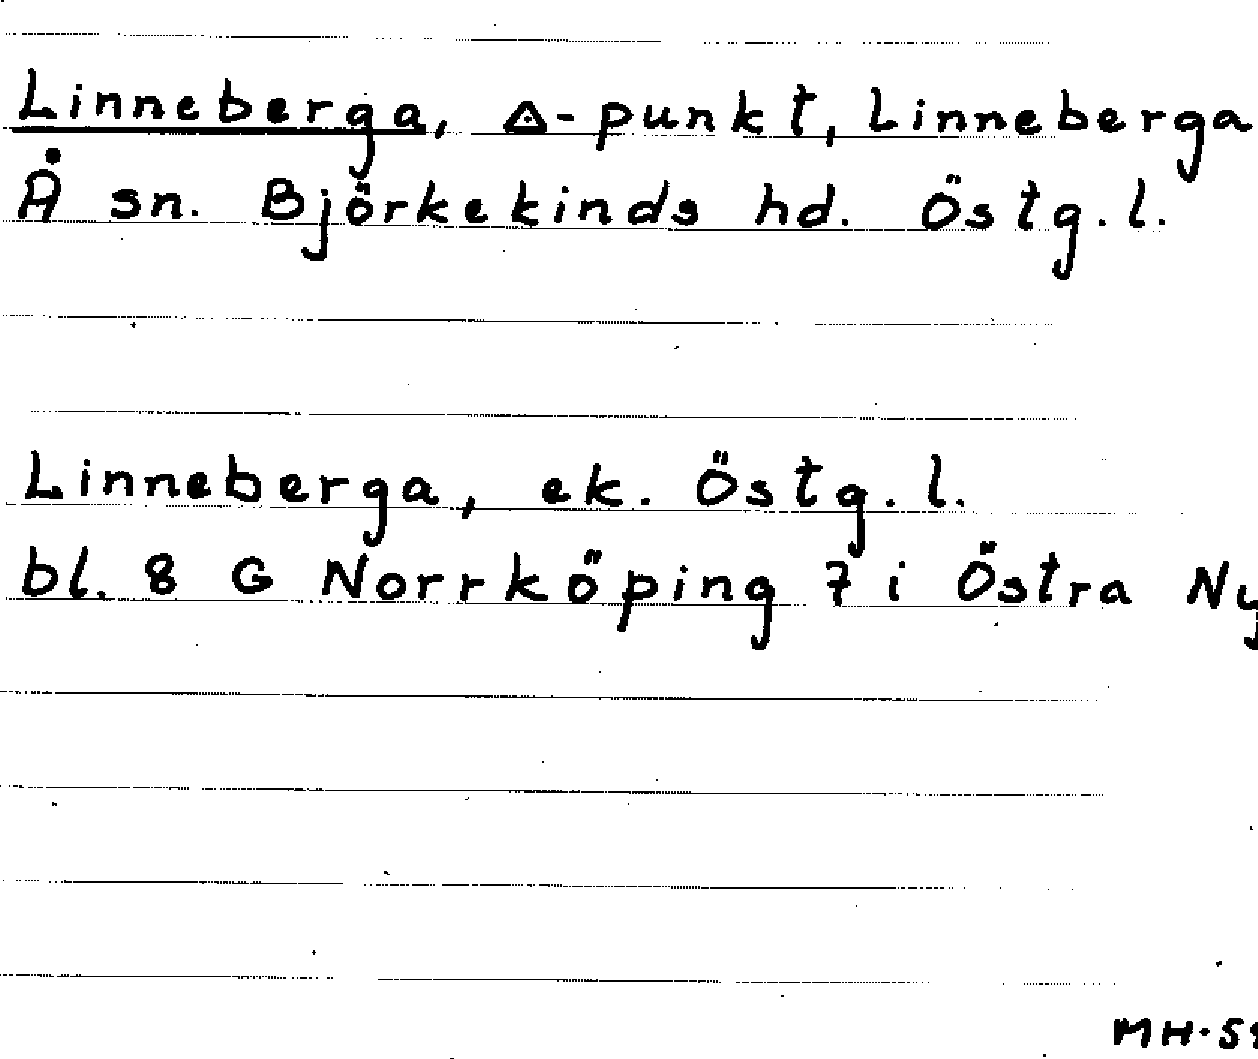 Linneberga, △-punkt, Linneberga
Å sn. Björkekinds hd. Östg.l.
Linneberga, ek. Östg.l.
bl. 8 G Norrköping 7 i Östra Ny